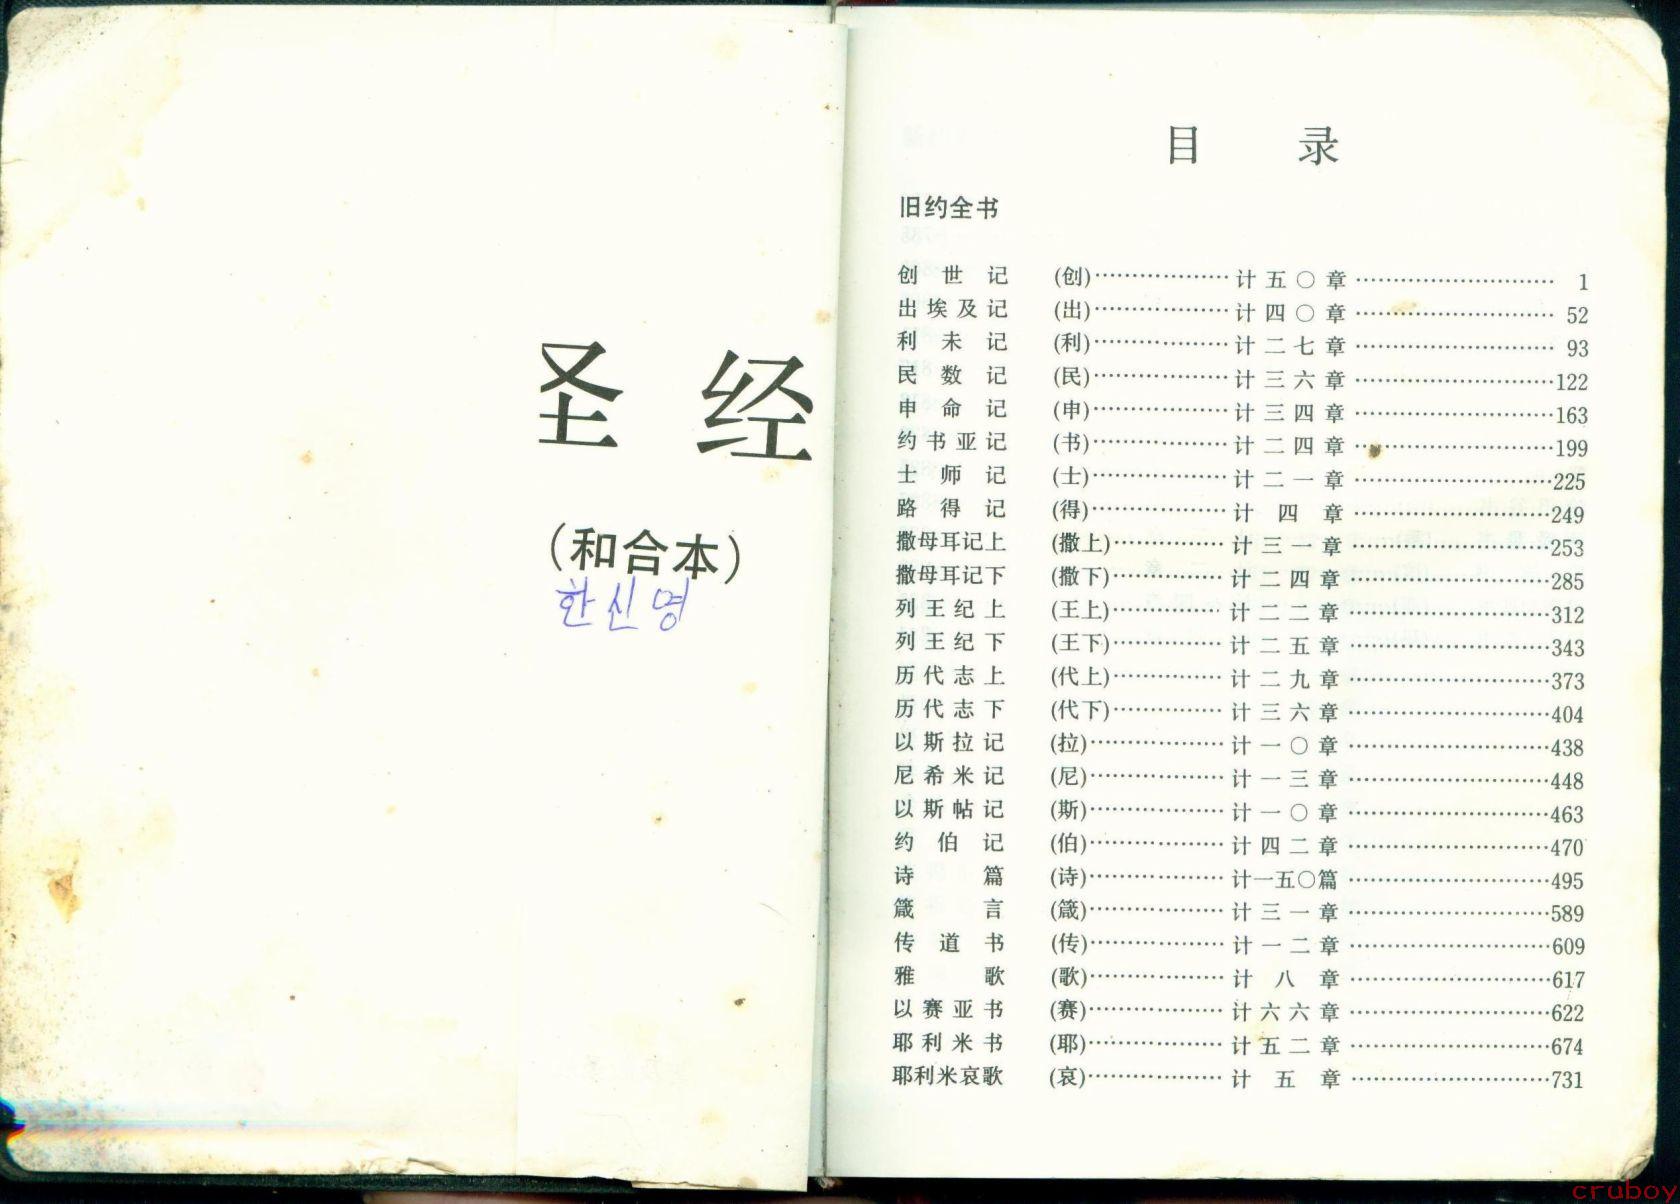 圣 经
(和合本)
한신명
目 录
旧约全书
创世记 (创)………………计五〇章………………………1
出埃及记 (出)………………计四〇章………………………52
利未记 (利)………………计二七章………………………93
民数记 (民)………………计三六章………………………122
申命记 (申)………………计三四章………………………163
约书亚记 (书)………………计二四章………………………199
士师记 (士)………………计二一章………………………225
路得记 (得)………………计四章………………………249
撒母耳记上 (撒上)……………计三一章………………………253
撒母耳记下 (撒下)……………计二四章………………………285
列王纪上 (王上)……………计二二章………………………312
列王纪下 (王下)……………计二五章………………………343
历代志上 (代上)……………计二九章………………………373
历代志下 (代下)……………计三六章………………………404
以斯拉记 (拉)………………计一〇章………………………438
尼希米记 (尼)………………计一三章………………………448
以斯帖记 (斯)………………计一〇章………………………463
约伯记 (伯)………………计四二章………………………470
诗篇 (诗)………………计一五〇篇………………………495
箴言 (箴)………………计三一章………………………589
传道书 (传)………………计一二章………………………609
雅歌 (歌)………………计八章………………………617
以赛亚书 (赛)………………计六六章………………………622
耶利米书 (耶)………………计五二章………………………674
耶利米哀歌 (哀)………………计五章………………………731
cruboy